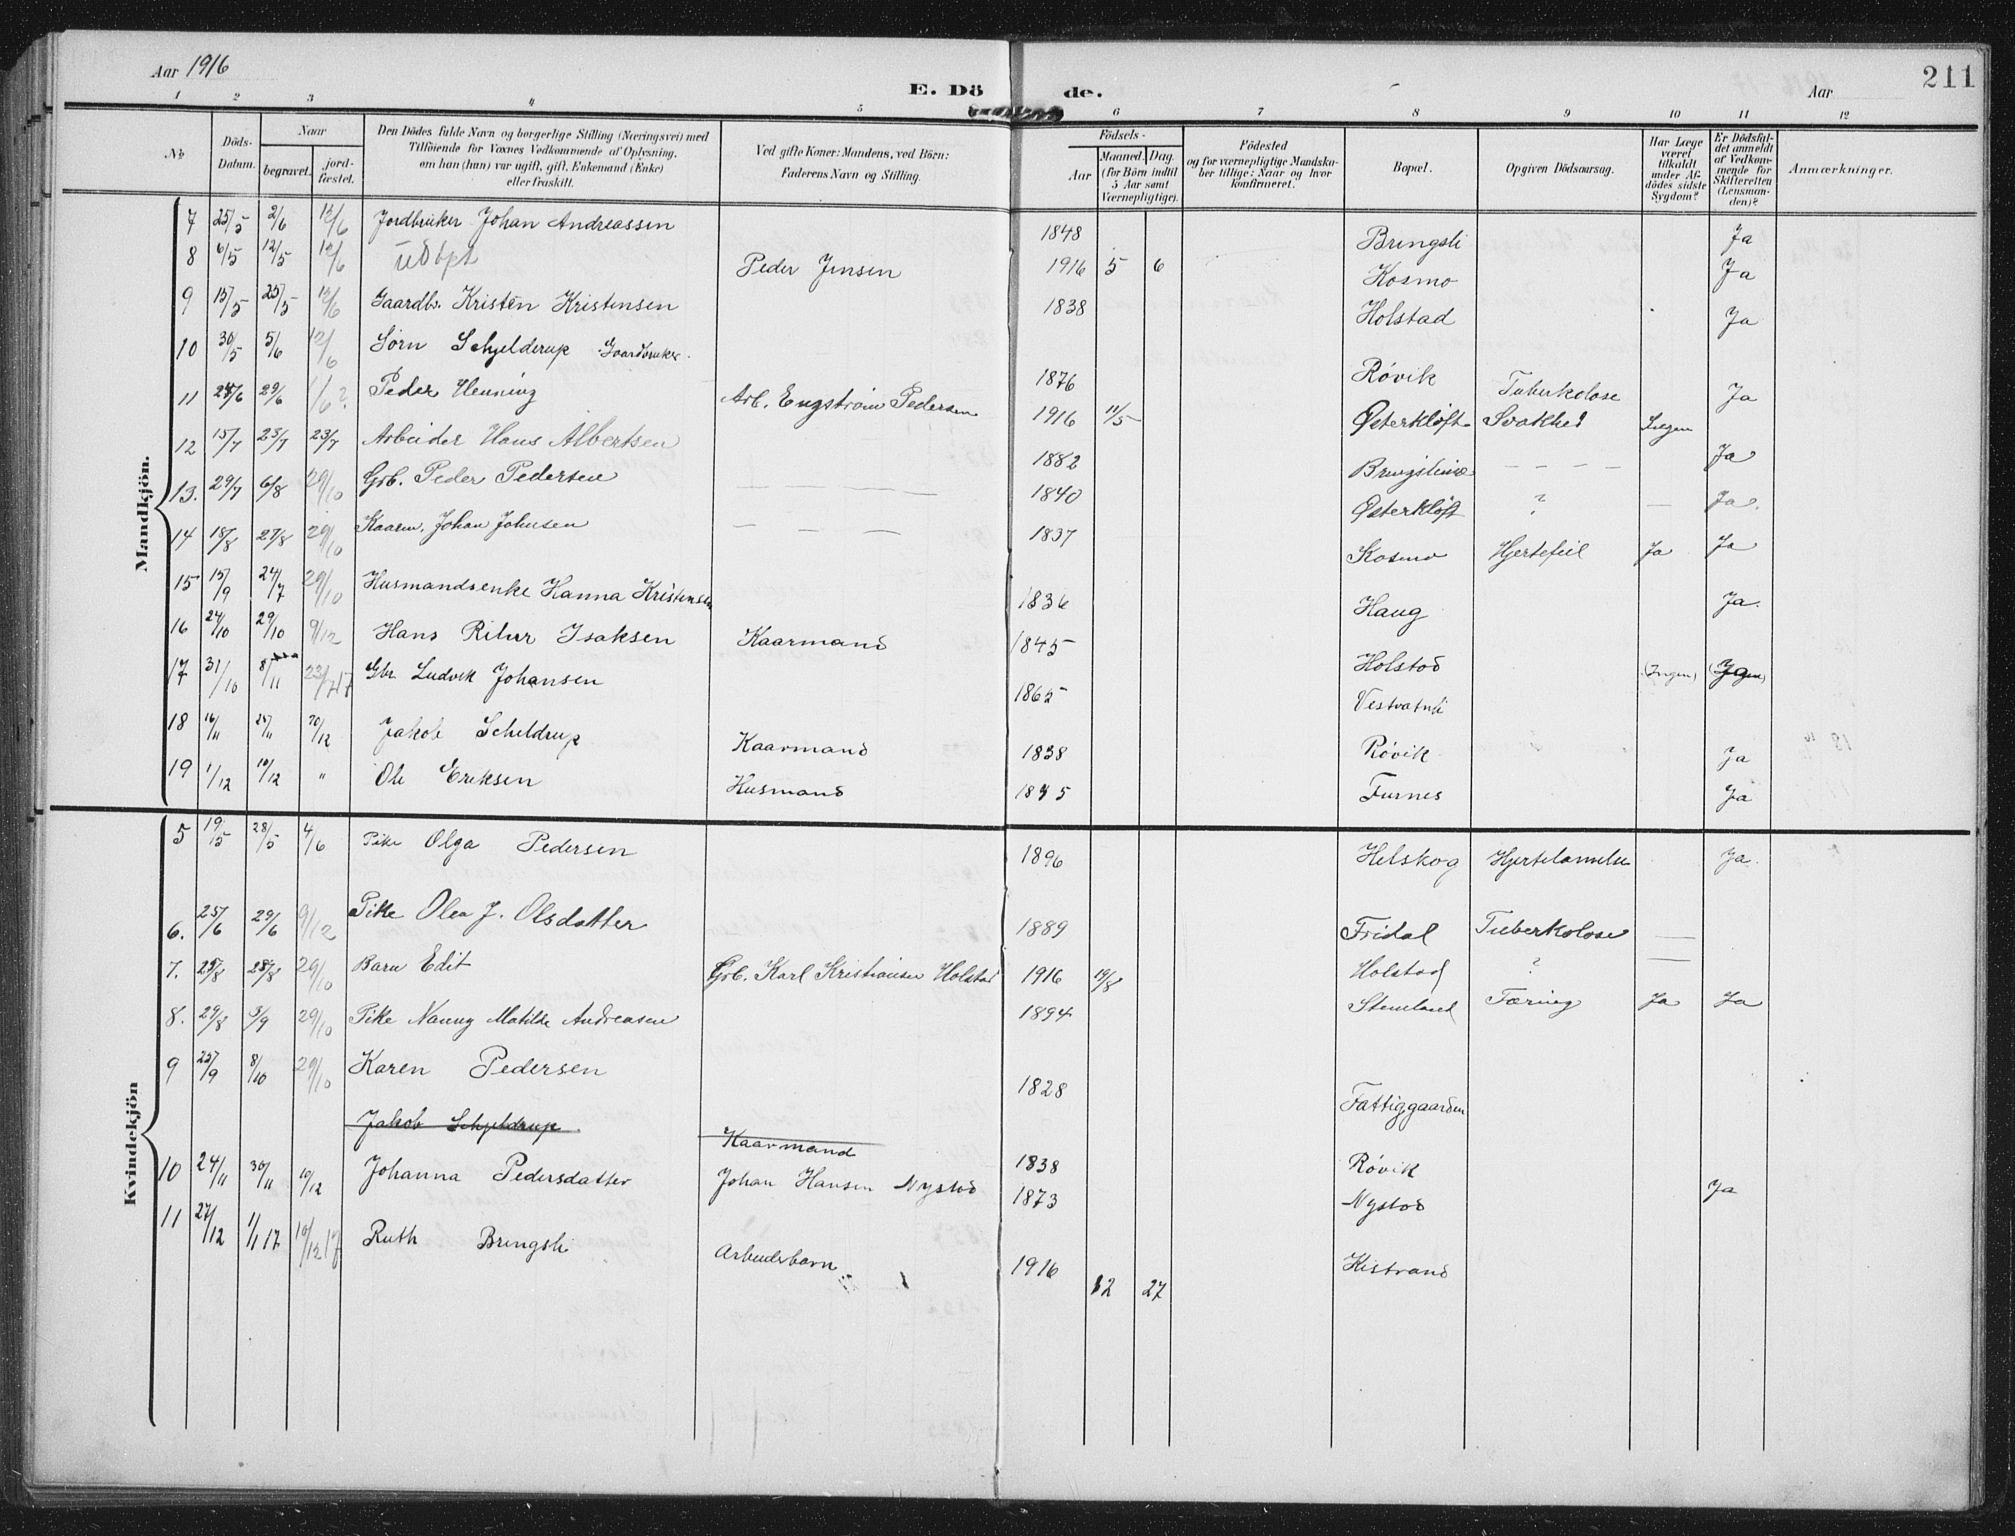 Aar 1916
E. Dö de.
Aar
211
1 2 3 4 5 6 7 8 9 10 11 12
№
Döds-Datum.
Naar
begravet.
jord-fæstet.
Den Dödes fulde Navn og borgerlige Stilling (Næringsvei) med Tilföiende for Voxnes Vedkommende af Oplysning, om han (hun) var ugift, gift, Enkemand (Enke) eller fraskilt.
Ved gifte Koner: Mandens, ved Börn: Faderens Navn og Stilling.
Födsels-
Aar
Maaned. Dag.
(for Börn indtil 5 Aar samt Værnepligtige).
Födested og for værnepligtige Mandskaber tillige: Naar og hvor konfirmeret.
Bopæl.
Opgiven Dödsaarsag.
Har Læge været tilkaldt under Afdödes sidste Sygdom?
Er Dödsfaldet anmeldt af Vedkommende for Skifteretten (Lensmanden)?
Anmærkninger.
Mandkjön.
7 25/5 2/6 12/6 Jordbruker Johan Andreassen 1848 Bringsli Ja
8 6/5 12/5 12/6 udöpt Peder Jensen 1916 5 6 Kosmo Ja
9 15/5 25/5 12/6 Gaardbr. Kristen Kristensen 1838 Holstad Ja
10 30/5 5/6 12/6 Sørn Schjelderup Gaardbruker 1876 Røvik Tuberkolose Ja
11 24/6 29/6 1/6? Peder Henning Arb. Engstrøm Pedersen 1916 11/5 Østerkløft Svakhed Ingen
12 15/7 23/7 23/7 Arbeider Hans Albertsen 1882 Bringslimo — — — — Ja
13. 29/7 6/8 29/10 Grb. Peder Pedersen — — — — — 1840 Østerkløft ? — Ja.
14 18/8 27/8 29/10 Kaarm. Johan Johnsen — — — — 1837 Kosmo Hjertefeil Ja Ja
15 15/9 24/7 29/10 Husmandsenke Hanna Kristensen 1836 Haug Ja.
16 24/10 29/10 9/12 Hans Ritur Isaksen Kaarmand 1845 Holstad (Ingen)
17 31/10 8/11 23/7 17 Gbr Ludvik Johansen 1865 Vestvatnli
18 16/11 25/11 10/12 Jakob Scheldrup Kaarmand 1838 Røvik Ja
19 1/12 10/12 " Ole Eriksen Husmand 1845 Furnes Ja
Kvindekjön
5 19/5 28/5 4/6 Pike Olga Pedersen 1896 Helskog Hjertelammelse Ja.
6. 25/6 29/6 9/12 Pike Olea J. Olsdatter 1889 Fridal Tuberkolose —
7. 23/8 28/8 29/10 Barn Edit Grb. Karl Kristiansen Holstad 1916 19/8 Holstad ? —
8. 29/8 3/9 29/10 Pike Nanny Matilde Andreasen 1894 Stemland Tæring Ja Ja
9 25/9 8/10 29/10 Karen Pedersen 1828 Fattiggaarden
Jakob Schjeldrup Kaarmand 1838 Røvik
10 24/11 30/11 10/12 Johanna Pedersdatter Johan Hansen Nystad 1873 Nystad Ja
11 27/12 1/1 17 10/12 17 Ruth Bringsli Arbeidsbarn 1916 12 27 Kistrand